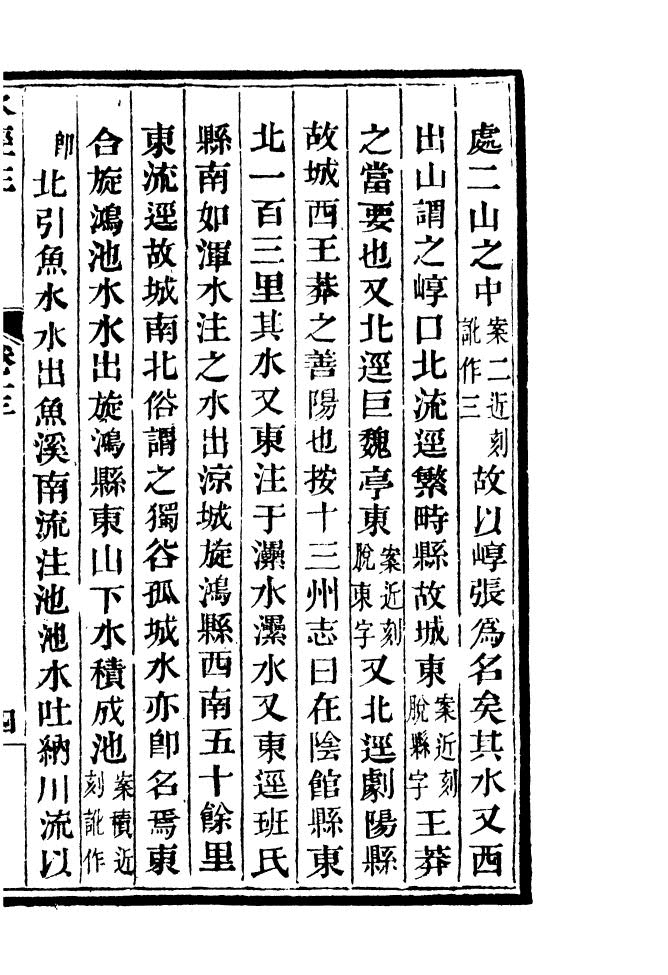 處二山之中案二近刻訛作三故以崞張爲名矣其水又西
出山謂之崞口北流逕繁畤縣故城東案近刻脫縣字王莽
之當要也又北逕巨魏亭東案近刻脫東字又北逕劇陽縣
故城西王莽之善陽也按十三州志曰在陰館縣東
北一百三里其水又東注于㶟水㶟水又東逕班氏
縣南如渾水注之水出涼城旋鴻縣西南五十餘里
東流逕故城南北俗謂之獨谷孤城水亦卽名焉東
合旋鴻池水水出旋鴻縣東山下水積成池案積近刻訛作
卽北引魚水水出魚溪南流注池池水吐納川流以
水經注 卷十三 四